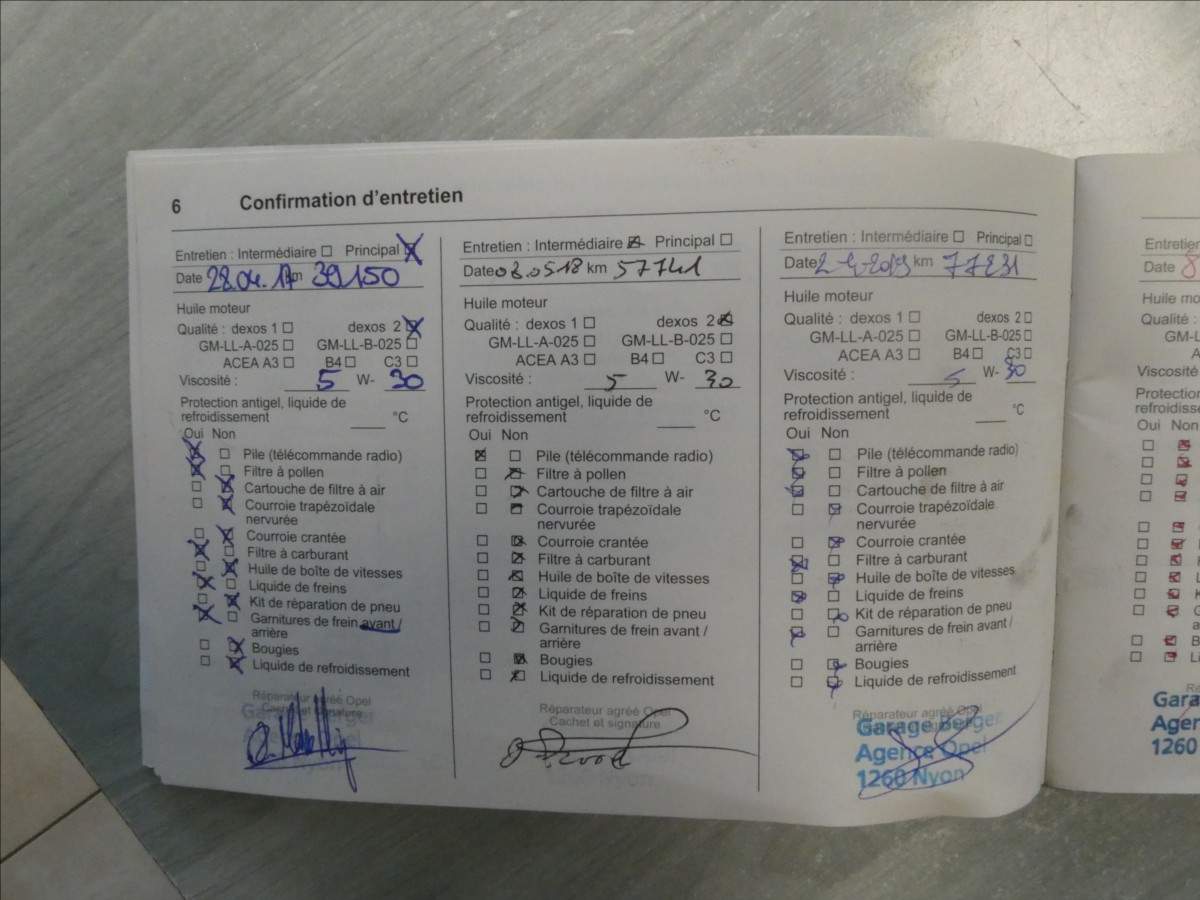 6 Confirmation d'entretien
Entretien : Intermédiaire Principal
Date 28.04.17 km 39150
Huile moteur
Qualité : dexos 1 dexos 2
GM-LL-A-025 GM-LL-B-025
ACEA A3 B4 C3
Viscosité : 5 W- 30
Protection antigel, liquide de
refroidissement °C
Oui Non
Pile (télécommande radio)
Filtre à pollen
Cartouche de filtre à air
Courroie trapézoïdale
nervurée
Courroie crantée
Filtre à carburant
Huile de boîte de vitesses
Liquide de freins
Kit de réparation de pneu
Garnitures de frein avant /
arrière
Bougies
Liquide de refroidissement
Réparateur agréé Opel
Cachet et signature
Garage Berger
Entretien : Intermédiaire Principal
Date 03.05.18 km 57741
Huile moteur
Qualité : dexos 1 dexos 2
GM-LL-A-025 GM-LL-B-025
ACEA A3 B4 C3
Viscosité : 5 W- 30
Protection antigel, liquide de
refroidissement °C
Oui Non
Pile (télécommande radio)
Filtre à pollen
Cartouche de filtre à air
Courroie trapézoïdale
nervurée
Courroie crantée
Filtre à carburant
Huile de boîte de vitesses
Liquide de freins
Kit de réparation de pneu
Garnitures de frein avant /
arrière
Bougies
Liquide de refroidissement
Réparateur agréé Opel
Cachet et signature
Entretien : Intermédiaire Principal
Date km 77231
Huile moteur
Qualité : dexos 1 dexos 2
GM-LL-A-025 GM-LL-B-025
ACEA A3 B4 C3
Viscosité : 5 W- 30
Protection antigel, liquide de
refroidissement °C
Oui Non
Pile (télécommande radio)
Filtre à pollen
Cartouche de filtre à air
Courroie trapézoïdale
nervurée
Courroie crantée
Filtre à carburant
Huile de boîte de vitesses
Liquide de freins
Kit de réparation de pneu
Garnitures de frein avant /
arrière
Bougies
Liquide de refroidissement
Réparateur agréé Opel
Garage Berger
Agence Opel
1260 Nyon
Entretien
Date 8
Huile mo
Qualité :
GM-L
Viscosité
Protection
refroidisse
Oui Non
Gara
Agen
1260